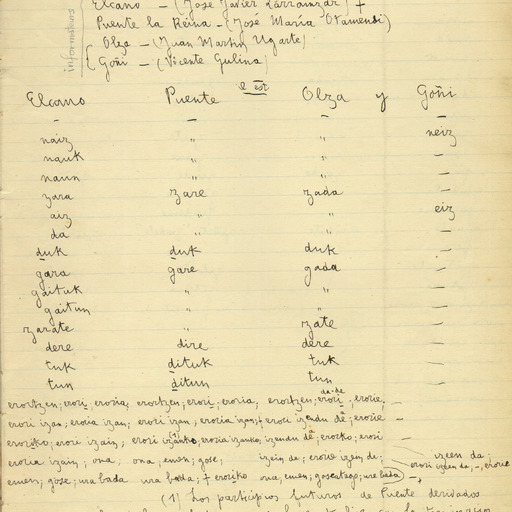 Elcano – (José Javier Larrainzar) +
informateurs
Puente la Reina – (José María Otamendi)
Olza – (Juan Martin Ugarte)
Goñi – (Vicente Gulina)
il est
Elcano Puente Olza y Goñi
– – – –
naiz " " neiz
nauk " " –
naun " " –
zara zare zada –
aiz " " eiz
da " " –
duk duk duk –
gara gare gada –
gaituk " " –
gaitun " " –
zarate zate –
dere dire dere –
tuk dituk tuk –
tun ditun tun –
erortzen; erori, eroria, erortzen; erori, eroria, erortzen; erori, erorie, –
erori izan; eroria izan; erori izan; eroria izan; + erori izendu da; erorie –
eroriko; erori izain; erori izanko, eroria izanko, izendu da, erorko, erori
eroria izain; ona, ona, emen, gose, izein de; erorie izem de; – izeen da;
emen; gose; ura bada ura bada; + eroriko ona, emen; ura bada –,
(1) Los participios futuros de Puente derivados